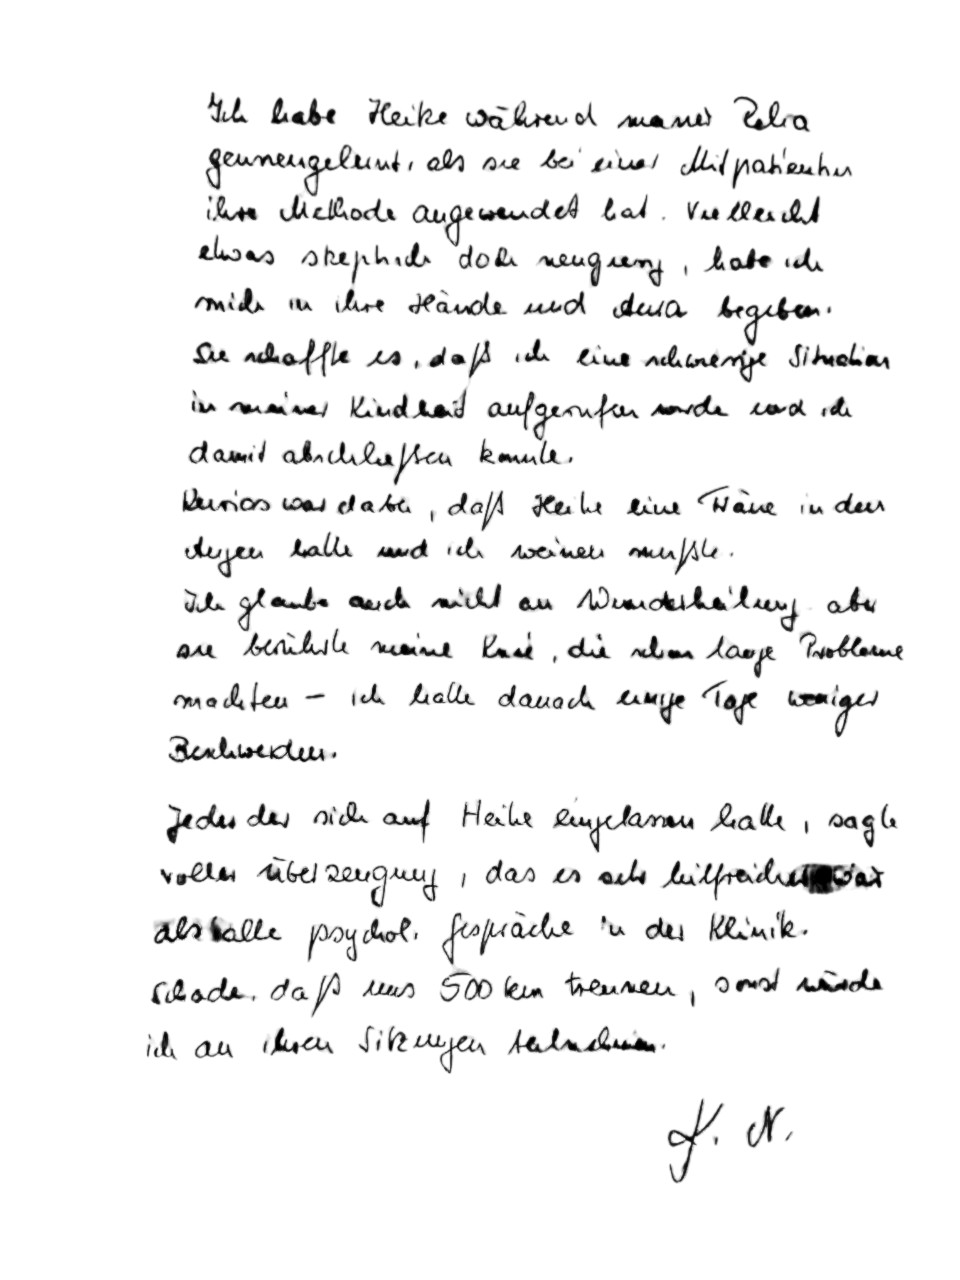 Ich habe Heike während meiner Reha
kennengelernt, als sie bei einer Mitpatientin
ihre Methode angewendet hat. Vielleicht
etwas skeptisch doch neugierig, habe ich
mich in ihre Hände und Aura begeben.
Sie schaffte es, daß ich eine schwierige Situation
in meiner Kindheit aufgerufen wurde und ich
damit abschließen konnte.
Kurios war dabei, daß Heike eine Träne in den
Augen hatte und ich weinen mußte.
Ich glaube auch nicht an Wunderheilung aber
sie berührte meine Knie, die schon lange Probleme
machten – ich hatte danach einige Tage weniger
Beschwerden.
Jeder der sich auf Heike eingelassen hatte, sagte
voller Überzeugung, das es sehr hilfreicher war
als alle psychol. Gespräche in der Klinik.
Schade, daß uns 500 km trennen, sonst würde
ich an ihren Sitzungen teilnehmen.
K. N.